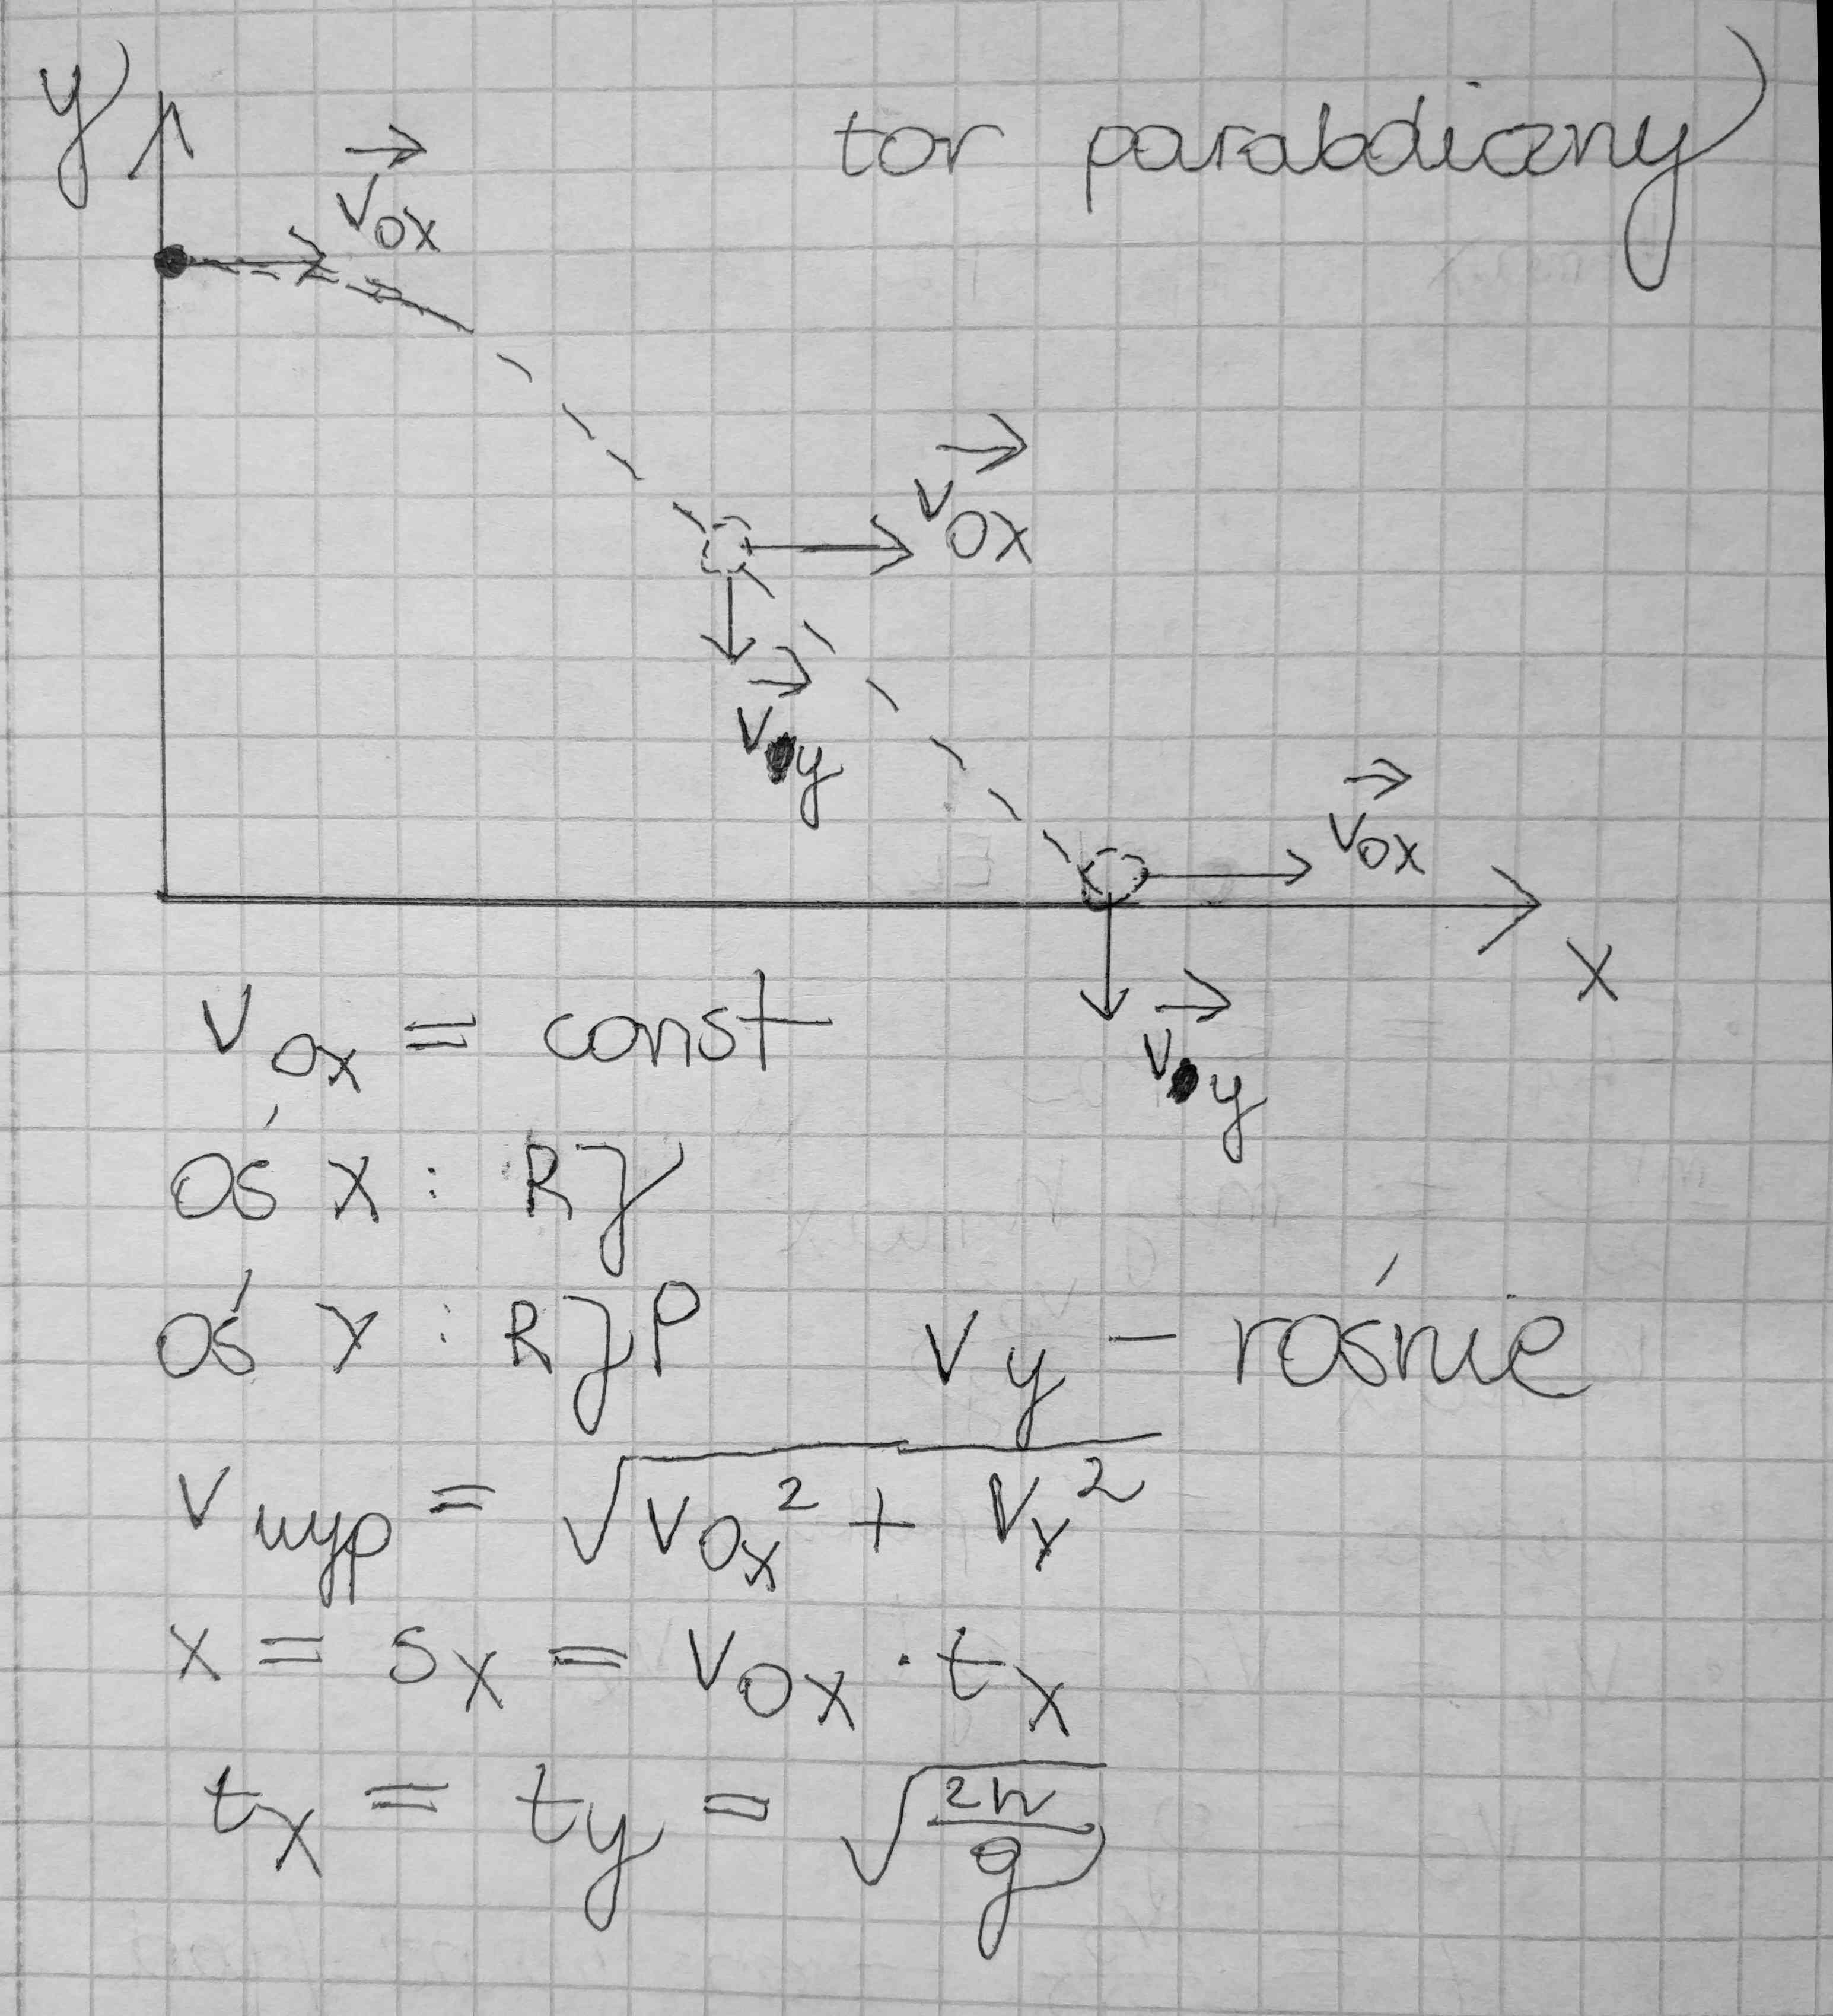 y
tor paraboliczny
→
v₀ₓ
→
v₀ₓ
→
v y
→
v₀ₓ
x
→
v y
v₀ₓ = const
oś x : RJ
oś Y : RJP v_y – rośnie
v_wyp = √(v₀ₓ² + v_y²)
x = sₓ = v₀ₓ · tₓ
tₓ = t_y = √(2h/g)